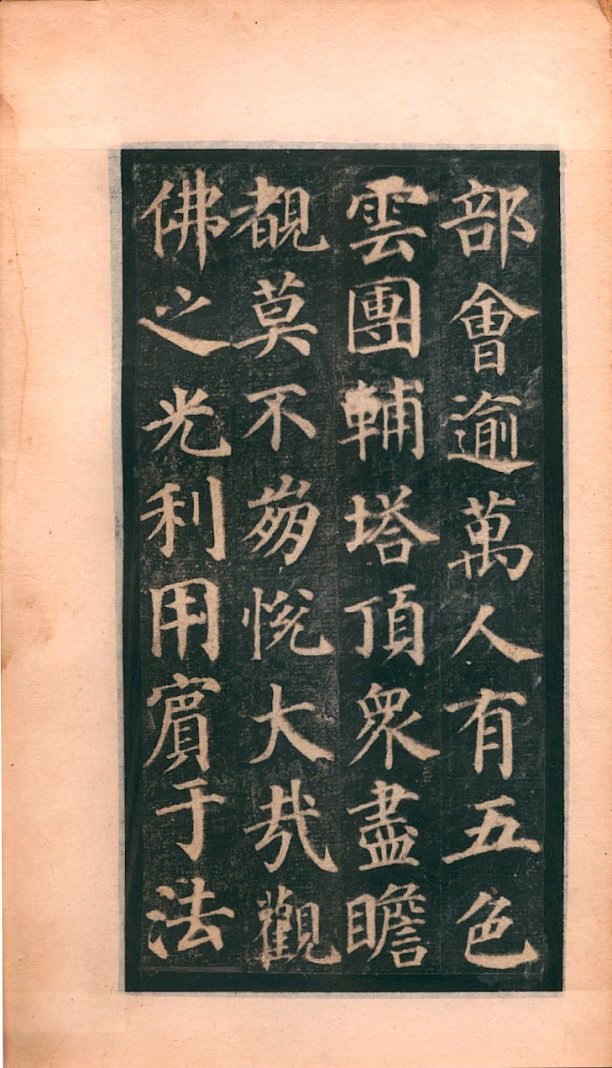 部會逾萬人有五色
雲團輔塔頂衆盡瞻
覩莫不崩悅大哉觀
佛之光利用賓于法